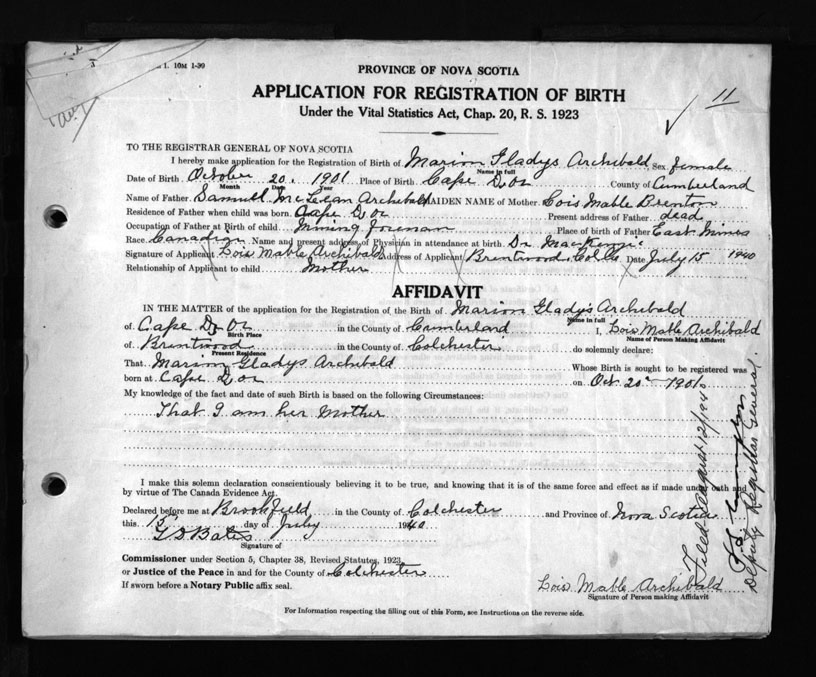 1. 10M 1-39
PROVINCE OF NOVA SCOTIA
APPLICATION FOR REGISTRATION OF BIRTH
11
Under the Vital Statistics Act, Chap. 20, R. S. 1923
TO THE REGISTRAR GENERAL OF NOVA SCOTIA
I hereby make application for the Registration of Birth of Marion Gladys Archibald, Sex female
Name in full
Date of Birth October 20. 1901 Place of Birth Cape D'Or County of Cumberland
Month Date Year
Name of Father Samuel McLean Archibald MAIDEN NAME of Mother Lois Mable Brenton
Residence of Father when child was born Cape D'Or Present address of Father dead
Occupation of Father at Birth of child Mining foreman Place of birth of Father East Mines
Race Canadian Name and present address of Physician in attendance at birth Dr. MacKenzie
Signature of Applicant Lois Mable Archibald Address of Applicant Brentwood Col. Co. Date July 15 1940
Relationship of Applicant to child Mother
AFFIDAVIT
IN THE MATTER of the application for the Registration of the Birth of Marion Gladys Archibald
Name in full
of Cape D'Or in the County of Cumberland I, Lois Mable Archibald
Birth Place Name of Person Making Affidavit
of Brentwood in the County of Colchester do solemnly declare:
Present Residence
That Marion Gladys Archibald Whose Birth is sought to be registered was
born at Cape D'or on Oct 20 1901
My knowledge of the fact and date of such Birth is based on the following Circumstances:
That I am her Mother
I make this solemn declaration conscientiously believing it to be true, and knowing that it is of the same force and effect as if made under oath and
by virtue of The Canada Evidence Act.
Declared before me at Brookfield in the County of Colchester and Province of Nova Scotia
this 15 day of July 1940
G D Bates
Signature of
Commissioner under Section 5, Chapter 38, Revised Statutes, 1923
or Justice of the Peace in and for the County of Colchester
If sworn before a Notary Public affix seal.
Lois Mable Archibald
Signature of Person making Affidavit
For Information respecting the filling out of this Form, see Instructions on the reverse side.
Filed August 12/1940
Deputy Registrar General.